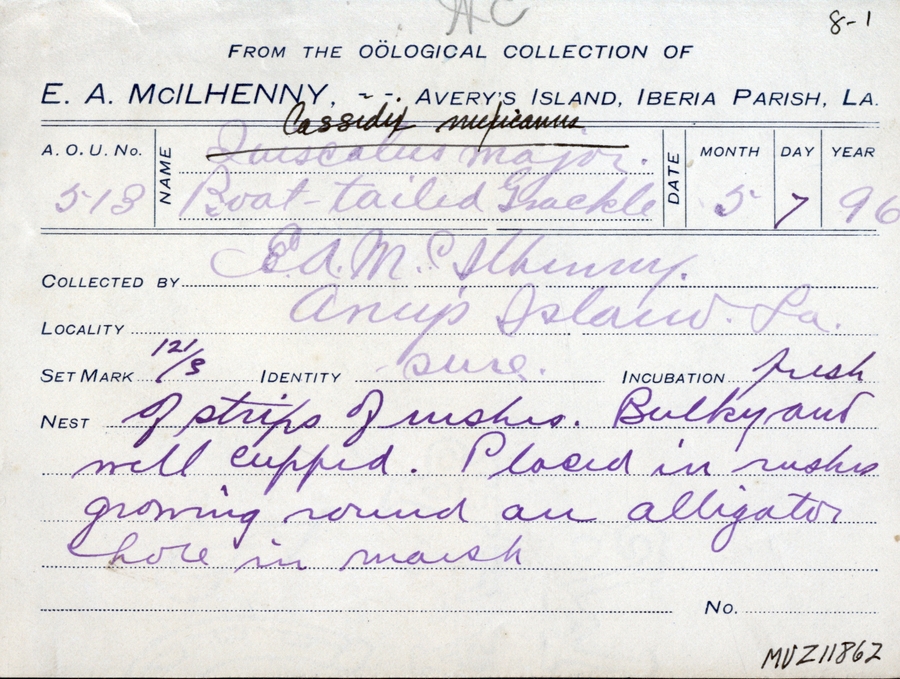 AC
8-1
FROM THE OÖLOGICAL COLLECTION OF
E. A. MCILHENNY, - - . AVERY'S ISLAND, IBERIA PARISH, LA.
Cassidix mexicanus
A. O. U. No. NAME Quiscalus major. DATE MONTH DAY YEAR
513 Boat-tailed Grackle 5 7 96
COLLECTED BY E. A. McIlhenny.
LOCALITY Averys Island. La.
SET MARK 121/3 IDENTITY sure. INCUBATION fresh
NEST of strips of rushes. Bulky and
well cupped. Placed in rushes
growing round an alligator
hole in marsh
No.
MVZ11862